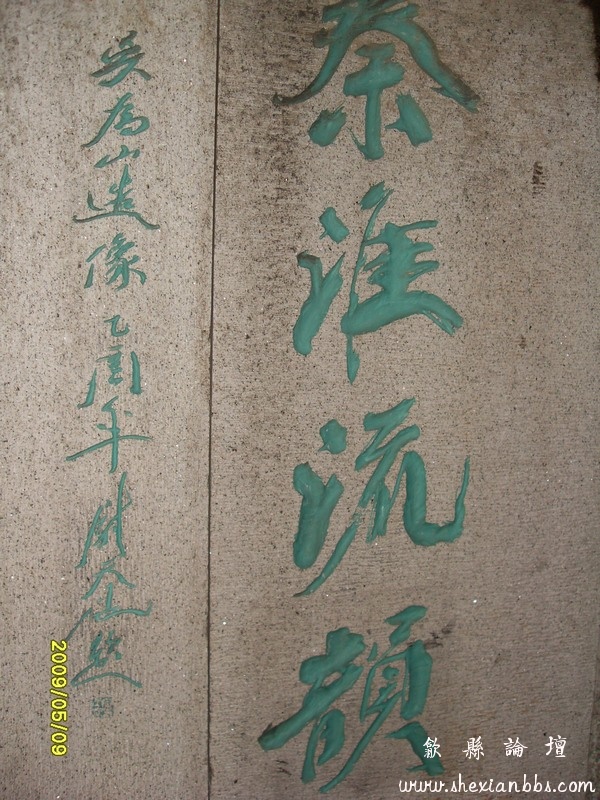 秦淮流韻
吳為山造像 乙酉年 尉天池
2009/05/09
歙縣論壇
www.shexianbbs.com